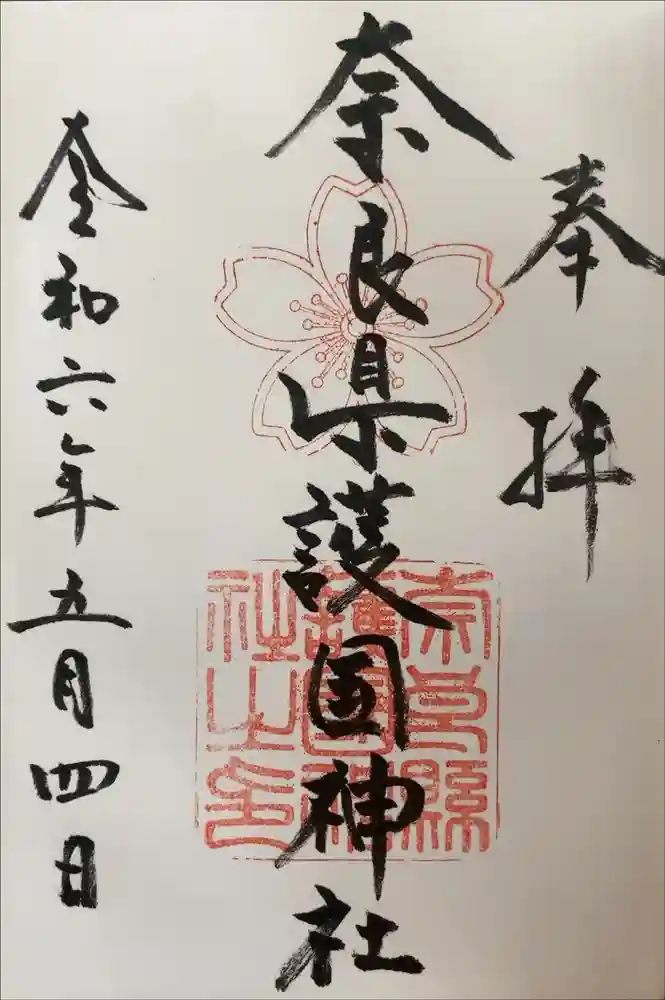 奉拝
奈良県護国神社
奈良縣
護國神
社之印
令和六年五月四日